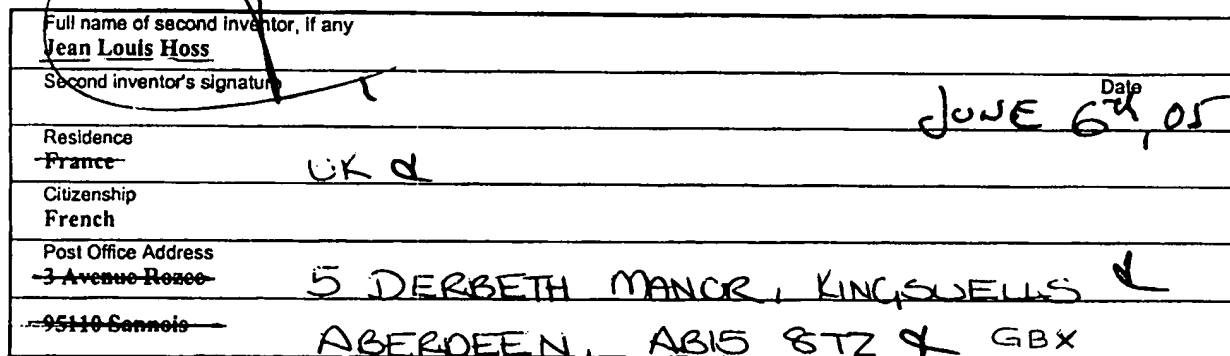 Full name of second inventor, if any
Jean Louis Hoss
Second inventor's signature
Date
JUNE 6th, 05
Residence
France UK
Citizenship
French
Post Office Address
3 Avenue Rozee 5 DERBETH MANOR, KINGSWELLS
95110 Sannois ABERDEEN, AB15 8TZ GBX